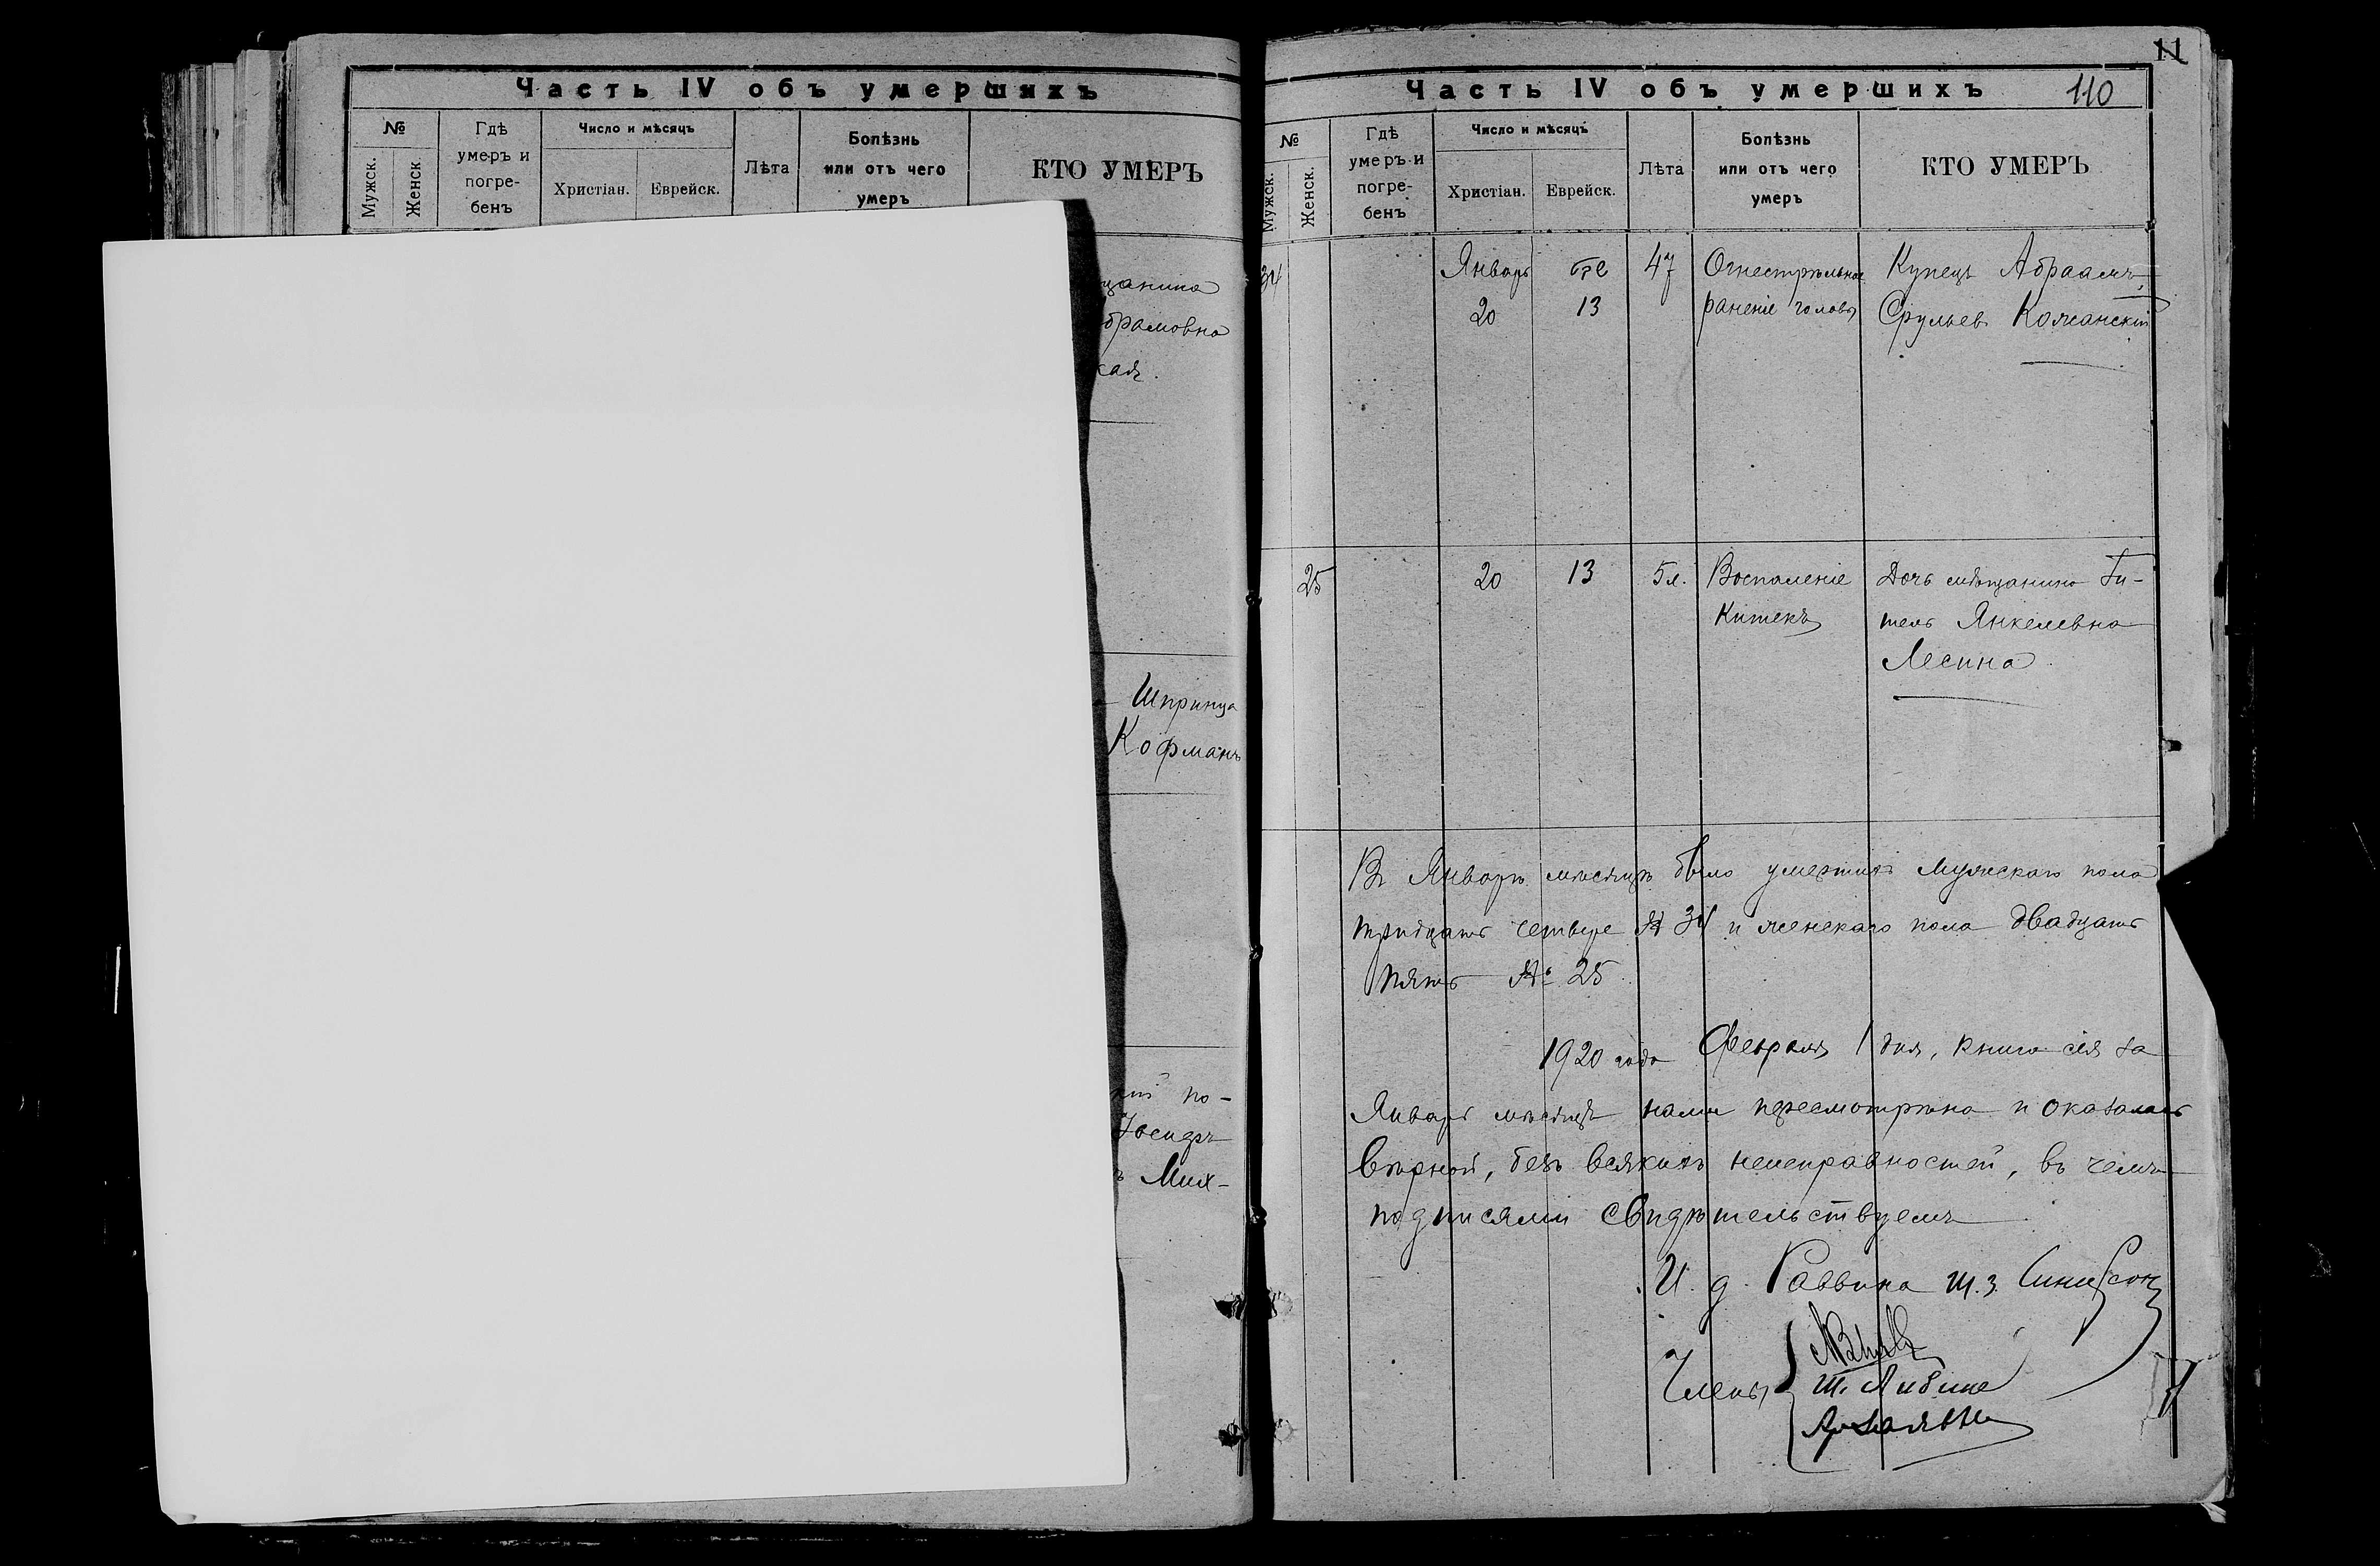 Часть IV объ умершихъ
№
Мужск.
Женск
Гдѣ
умеръ и
погре-
бенъ
Число и мѣсяцъ
Христіан.
Еврейск.
Лѣта
Болѣзнь
или отъ чего
умеръ
КТО УМЕРЪ
щанина
брамовна
кая.
Шпринца
Кофманъ
кій по-
Мих-
11
Часть IV объ умершихъ
110
№
Мужск.
Женск.
Гдѣ
умеръ и
погре-
бенъ
Число и мѣсяцъ
Христіан.
Еврейск.
Лѣта
Болѣзнь
или отъ чего
умеръ
КТО УМЕРЪ
34
Январь
20
13
47
Огнестрѣльное
раненіе головы
Купецъ Абраамъ
Срульев Кожанскій
25
20
13
5 л.
Воспаленіе
Кишекъ
Дочь мѣщанина Ги-
тель Янкелевна
Лесина
Въ Январѣ мѣсяцѣ было умершихъ Мужскаго пола
тридцать четыре № 34 и женскаго пола двадцать
пять № 25
1920 года Февраля 1 дня, книга сія за
Январь мѣсяцъ нами пересмотрѣна и оказалась
вѣрной, безъ всякихъ неисправностей, въ чемъ
подписями свидѣтельствуемъ
И. д. Раввина Ш. З.
Члены
Ш. Либина